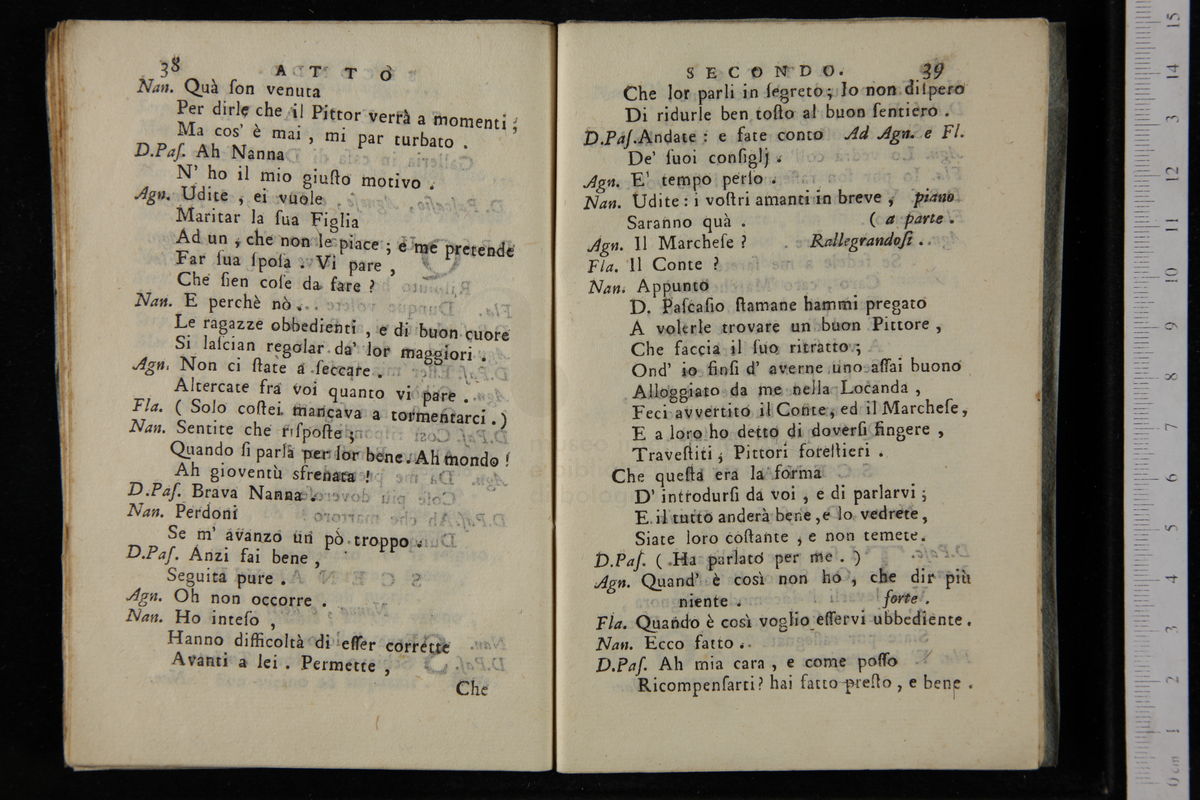 38 A T T O
Nan. Quà ſon venuta
Per dirle che il Pittor verrà a momenti;
Ma cos' è mai, mi par turbato.
D.Paſ. Ah Nanna
N' ho il mio giuſto motivo.
Agn. Udite, ei vuole
Maritar la ſua Figlia
Ad un, che non le piace; e me pretende
Far ſua ſpoſa. Vi pare,
Che ſien coſe da fare?
Nan. E perchè nò..
Le ragazze obbedienti, e di buon cuore
Si laſcian regolar da' lor maggiori.
Agn. Non ci ſtate a ſeccare.
Altercate fra voi quanto vi pare.
Fla. (Solo coſtei mancava a tormentarci.)
Nan. Sentite che riſpoſte;
Quando ſi parla per lor bene. Ah mondo!
Ah gioventù sfrenata!
D.Paſ. Brava Nanna.
Nan. Perdoni
Se m' avanzo un pò troppo.
D.Paſ. Anzi fai bene,
Seguita pure.
Agn. Oh non occorre.
Nan. Ho inteſo,
Hanno difficoltà di eſſer corrette
Avanti a lei. Permette,
Che
S E C O N D O. 39
Che lor parli in ſegreto; Io non diſpero
Di ridurle ben toſto al buon ſentiero.
D.Paſ. Andate: e fate conto Ad Agn. e Fl.
De' ſuoi conſiglj.
Agn. E' tempo perſo.
Nan. Udite: i voſtri amanti in breve, piano
Saranno quà. (a parte.
Agn. Il Marcheſe? Rallegrandoſi..
Fla. Il Conte?
Nan. Appunto
D. Paſcaſio ſtamane hammi pregato
A volerle trovare un buon Pittore,
Che faccia il ſuo ritratto;
Ond' io finſi d' averne uno aſſai buono
Alloggiato da me nella Locanda,
Feci avvertito il Conte, ed il Marcheſe,
E a loro ho detto di doverſi fingere,
Traveſtiti, Pittori foreſtieri.
Che queſta era la forma
D' introdurſi da voi, e di parlarvi;
E il tutto anderà bene, e lo vedrete,
Siate loro coſtante, e non temete.
D.Paſ. (Ha parlato per me.)
Agn. Quand' è così non ho, che dir più
niente. forte.
Fla. Quando è così voglio eſſervi ubbediente.
Nan. Ecco fatto.
D.Paſ. Ah mia cara, e come poſſo
Ricompenſarti? hai fatto preſto, e bene.
15
14
13
12
11
10
9
8
7
6
5
4
3
2
1
0 cm